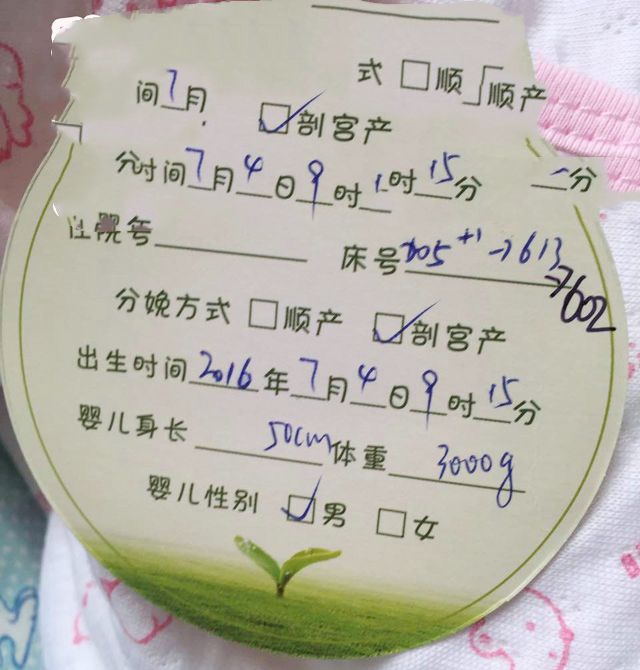 式 □顺 顺产
间7月 ☑剖宫产
分时间7月4日9时1时15分 分
住院号
床号705+1→613→602
分娩方式 □顺产 ☑剖宫产
出生时间2016年7月4日9时15分
婴儿身长 50cm 体重 3000g
婴儿性别 ☑男 □女